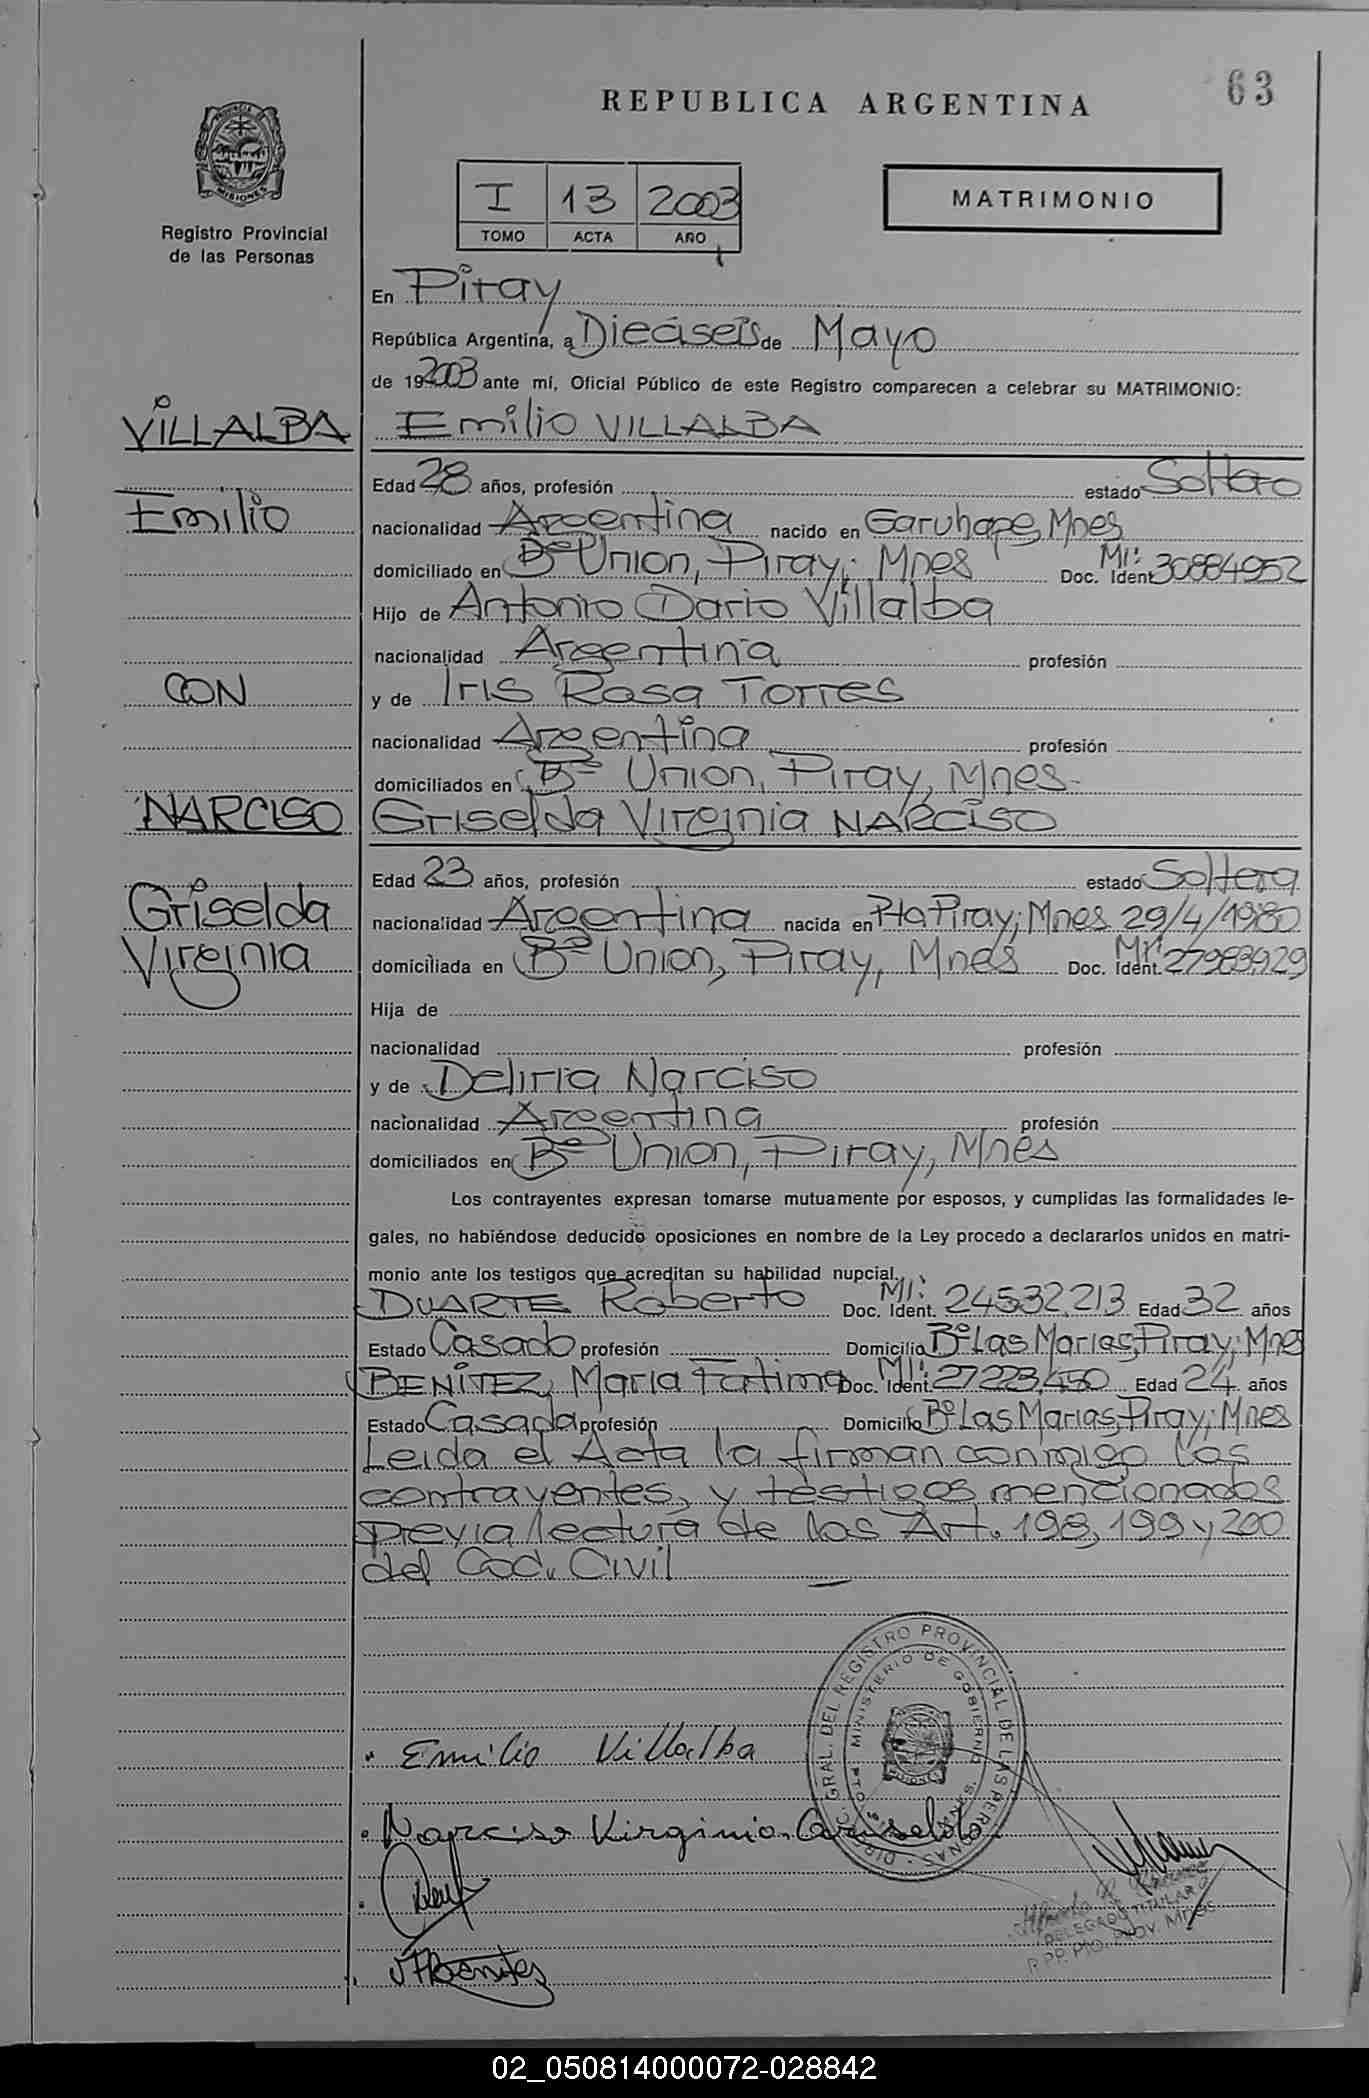 63
REPUBLICA ARGENTINA
PROVINCIA DE MISIONES
Registro Provincial
de las Personas
I 13 2003
TOMO ACTA AÑO
MATRIMONIO
En Piray
República Argentina, a Dieciseis de Mayo
de 19 2003 ante mí, Oficial Público de este Registro comparecen a celebrar su MATRIMONIO:
VILLALBA Emilio VILLALBA
Edad 28 años, profesión estado Soltero
Emilio nacionalidad Argentina nacido en Garuhape, Mnes
domiciliado en Bº Union, Piray, Mnes Doc. Ident. MI: 30884952
Hijo de Antonio Dario Villalba
nacionalidad Argentina profesión
CON y de Iris Rosa Torres
nacionalidad Argentina profesión
domiciliados en Bº Union, Piray, Mnes-
NARCISO Griselda Virginia NARCISO
Edad 23 años, profesión estado Soltera
Griselda nacionalidad Argentina nacida en Pto Piray; Mnes 29/4/1980
Virginia domiciliada en Bº Union, Piray, Mnes Doc. Ident. MI: 27983929
Hija de
nacionalidad profesión
y de Deliria Narciso
nacionalidad Argentina profesión
domiciliados en Bº Union, Piray, Mnes
Los contrayentes expresan tomarse mutuamente por esposos, y cumplidas las formalidades le-
gales, no habiéndose deducido oposiciones en nombre de la Ley procedo a declararlos unidos en matri-
monio ante los testigos que acreditan su habilidad nupcial.
DUARTE Roberto Doc. Ident. MI: 24532213 Edad 32 años
Estado Casado profesión Domicilio Bº Las Marias, Piray; Mnes
BENITEZ, Maria Fatima Doc. Ident. MI: 27223.450 Edad 24 años
Estado Casada profesión Domicilio Bº Las Marias, Piray; Mnes
Leida el Acta la firman conmigo los
contrayentes, y testigos mencionados
previa lectura de los Art. 198, 199 y 200
del Cod. Civil
DIREC. GRAL. DEL REGISTRO PROVINCIAL DE LAS PERSONAS
MINISTERIO DE GOBIERNO
Emilio Villalba
Narciso Virginia Griselda
DELEGADO TITULAR
02_050814000072-028842